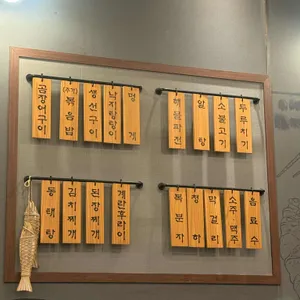 곰장어구이
(추가)볶음밥
생선구이
낙지탕탕이
멍게
해물파전
알탕
소불고기
두루치기
동태탕
김치찌개
된장찌개
계란후라이
복분자
청하
막걸리
소주·맥주
음료수